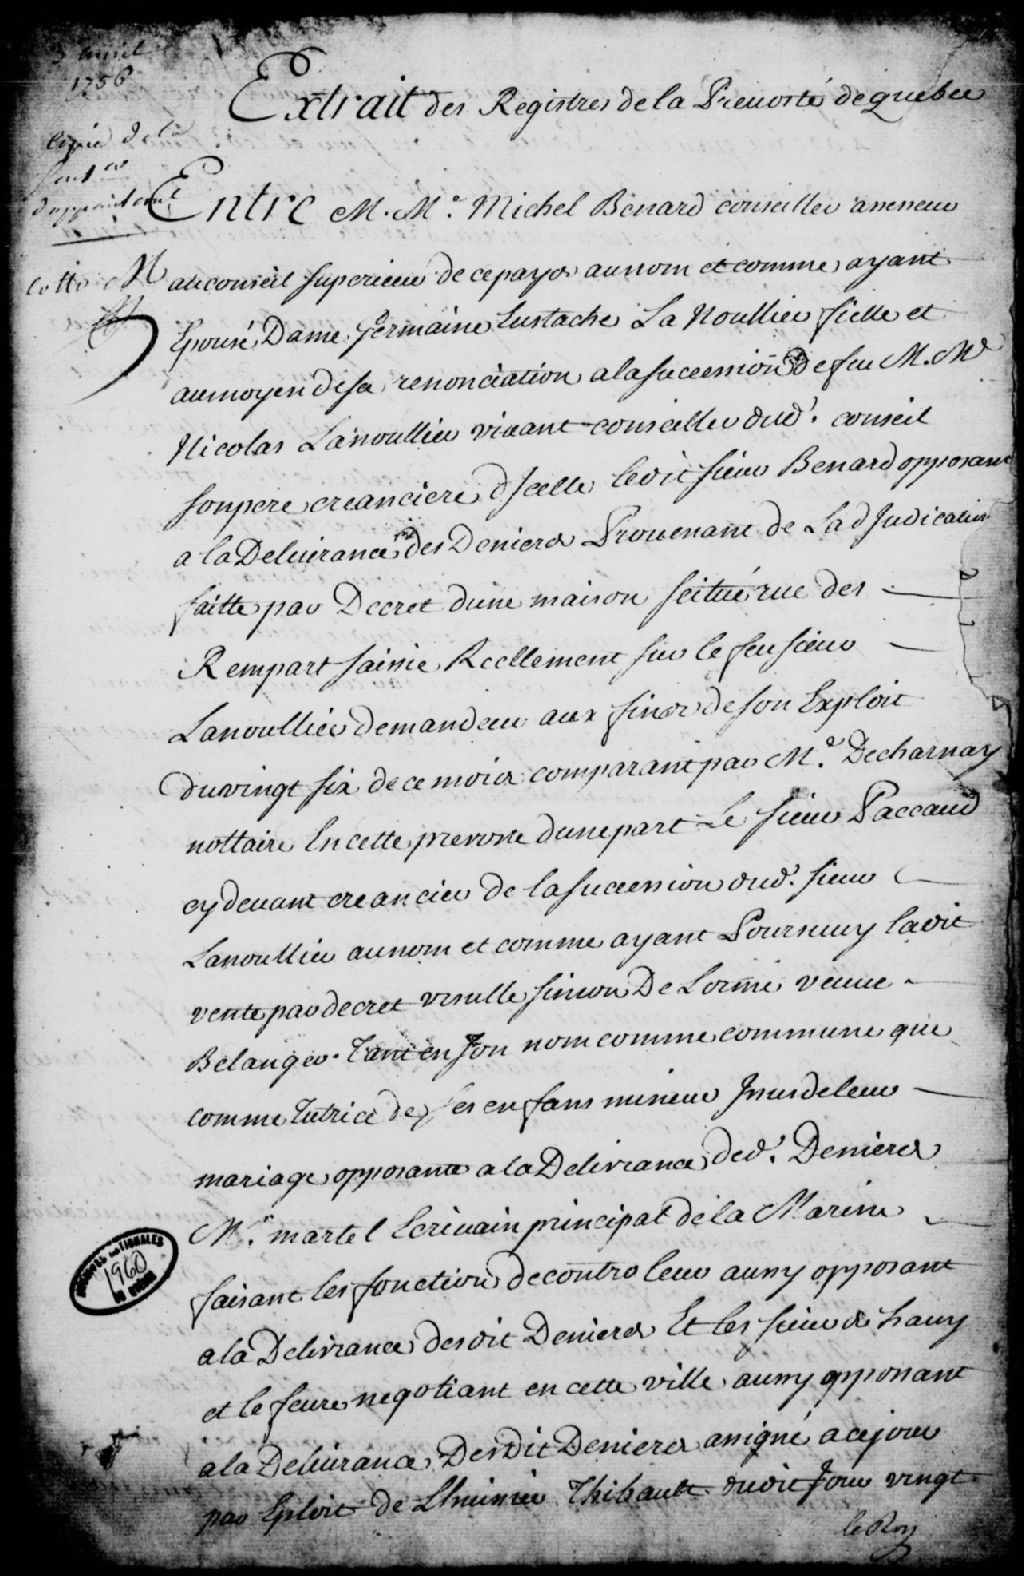 3 avril
1756
Extrait des Registres de la Prevosté de quebec
copie de la
sentce
d'appointemt
Entre M. Me. Michel Benard conseiller assesseur
cotté M
au conseil superieur de ce pays au nom et comme ayant
Epousé Dame germaine Eustache La Noullier fille et
au moyen de sa renonciation a la succession de feu M. Me
Nicolas Lanoullier vivant conseiller dud. conseil
son pere creanciere d'Jcelle ledit sieur Benard opposant
a la Delivrance des Deniers Provenant de Ladjudication
faitte par Decret dune maison scituée rue des
Rempart saisie Reellement sur le feu sieur
Lanoullier demandeur aux fins de son Exploit
du vingt six de ce mois comparant par Me. Decharnay
nottaire En cette prevosté dune part Le sieur Paccaud
cy devant creancier de la succession dud. sieur
Lanoullier au nom et comme ayant Poursuivy ladit
vente par decret Simon De Lorme veuve
Belanger. Tant en son nom comme commune que
comme Tutrice de ses enfans mineur Jssus de leur
mariage opposante a la Delivrance ded. Deniers
Mr. martel Ecrivain principal de la Marine
faisant les fonction de controleur aussy opposant
a la Delivrance desdit Deniers Et les sieurs havy
et lefevre negotiant en cette ville aussy opposant
a la Delivrance Desdit Deniers assigné a ce jour
par Eploit de L'huissier Thibault dudit Jour vingt
le Roy
ARCHIVES NATIONALES
1960